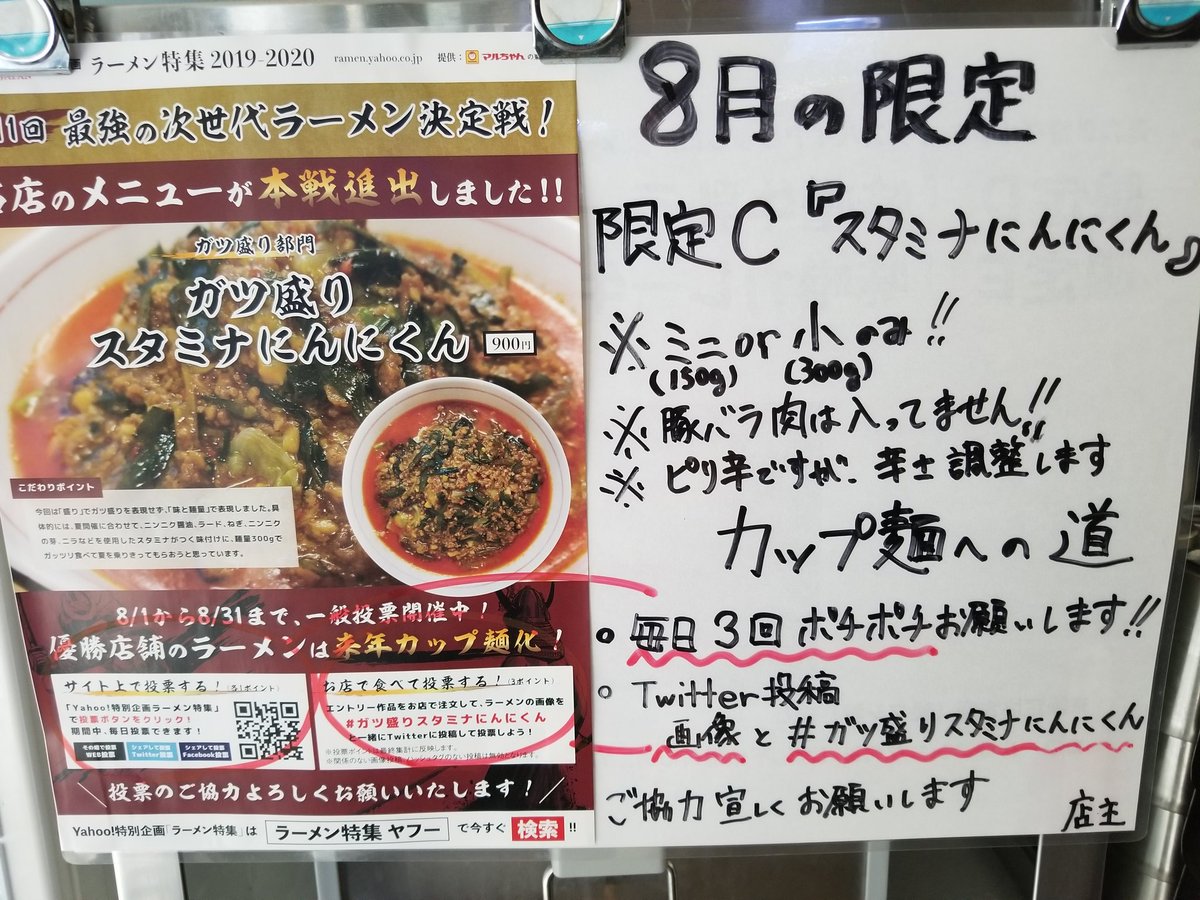 ラーメン特集 2019-2020 ramen.yahoo.co.jp 提供: マルちゃん
11回 最強の次世代ラーメン決定戦!
店のメニューが本戦進出しました!!
ガツ盛り部門
ガツ盛り
スタミナにんにくん 900円
こだわりポイント
今回は「盛り」でガツ盛りを表現せず、「味と麺量」で表現しました。具
体的には、夏開催に合わせて、ニンニク醤油、ラード、ねぎ、ニンニク
の芽、ニラなどを使用したスタミナがつく味付けに、麺量300gで
ガッツリ食べて夏を乗りきってもらおうと思っています。
8/1から8/31まで、一般投票開催中!
優勝店舗のラーメンは来年カップ麺化!
サイト上で投票する!(各1ポイント)
「Yahoo!特別企画ラーメン特集」
で投票ボタンをクリック!
期間中、毎日投票できます!
その場で投票 WEB投票
シェアして投票 Twitter投票
シェアして投票 Facebook投票
お店で食べて投票する!(3ポイント)
エントリー作品をお店で注文して、ラーメンの画像を
#ガツ盛りスタミナにんにくん
と一緒にTwitterに投稿して投票しよう!
※投票ポイントは最終集計に反映します。
※関係のない画像投稿、ハッシュタグのない投稿は無効となります。
投票のご協力よろしくお願いいたします!
Yahoo!特別企画「ラーメン特集」は ラーメン特集 ヤフー で今すぐ 検索 !!
8月の限定
限定C『スタミナにんにくん』
※ミニor小のみ!!
(150g) (300g)
※豚バラ肉は入ってません!!
※ピリ辛ですが、辛さ調整します
カップ麺への道
○毎日3回ポチポチお願いします!!
○Twitter投稿
画像と#ガツ盛りスタミナにんにくん
ご協力宜しくお願いします
店主